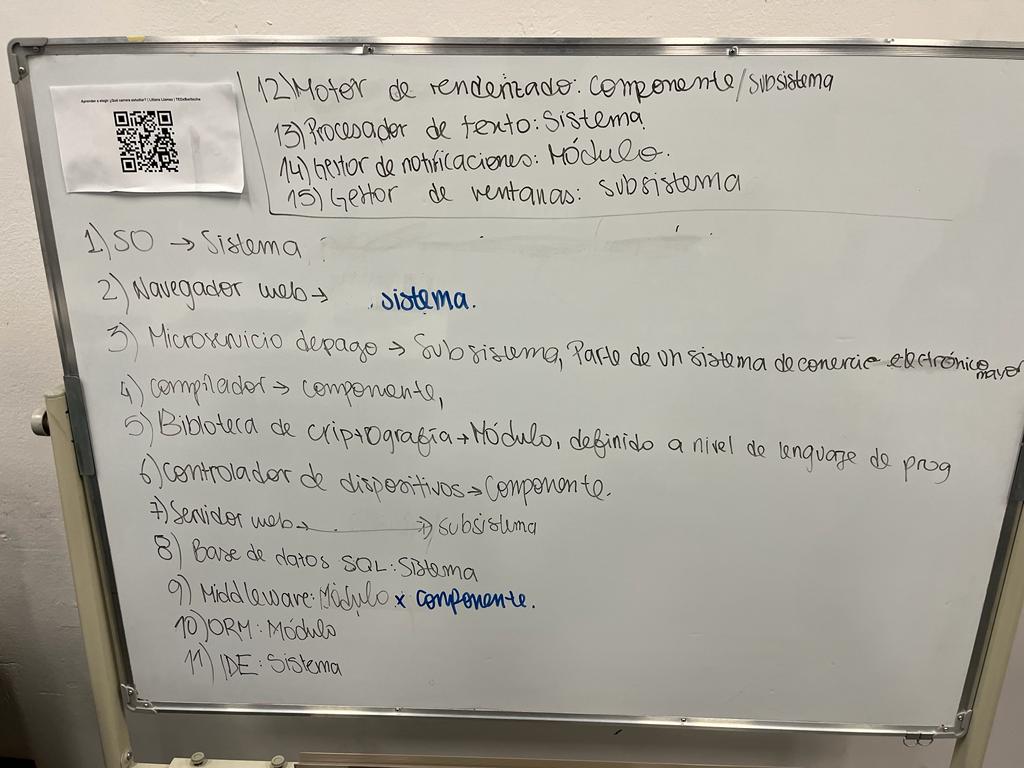 Aprender a elegir ¿Qué carrera estudiar? | Liliana Llamas | TEDxBarbecho
12) Motor de renderizado: Componente/Subsistema
13) Procesador de texto: Sistema
14) Gestor de notificaciones: Módulo.
15) Gestor de ventanas: subsistema
1) SO → Sistema
2) Navegador web → sistema.
3) Microservicio de pago → Subsistema, Parte de un sistema de comercio electrónico mayor
4) compilador → componente,
5) Bibloteca de criptografía → Módulo, definido a nivel de lenguaje de prog
6) controlador de dispositivos → Componente.
7) Servidor web → subsistema
8) Base de datos SQL: Sistema
9) Middleware: Módulo x componente.
10) ORM: Módulo
11) IDE: Sistema